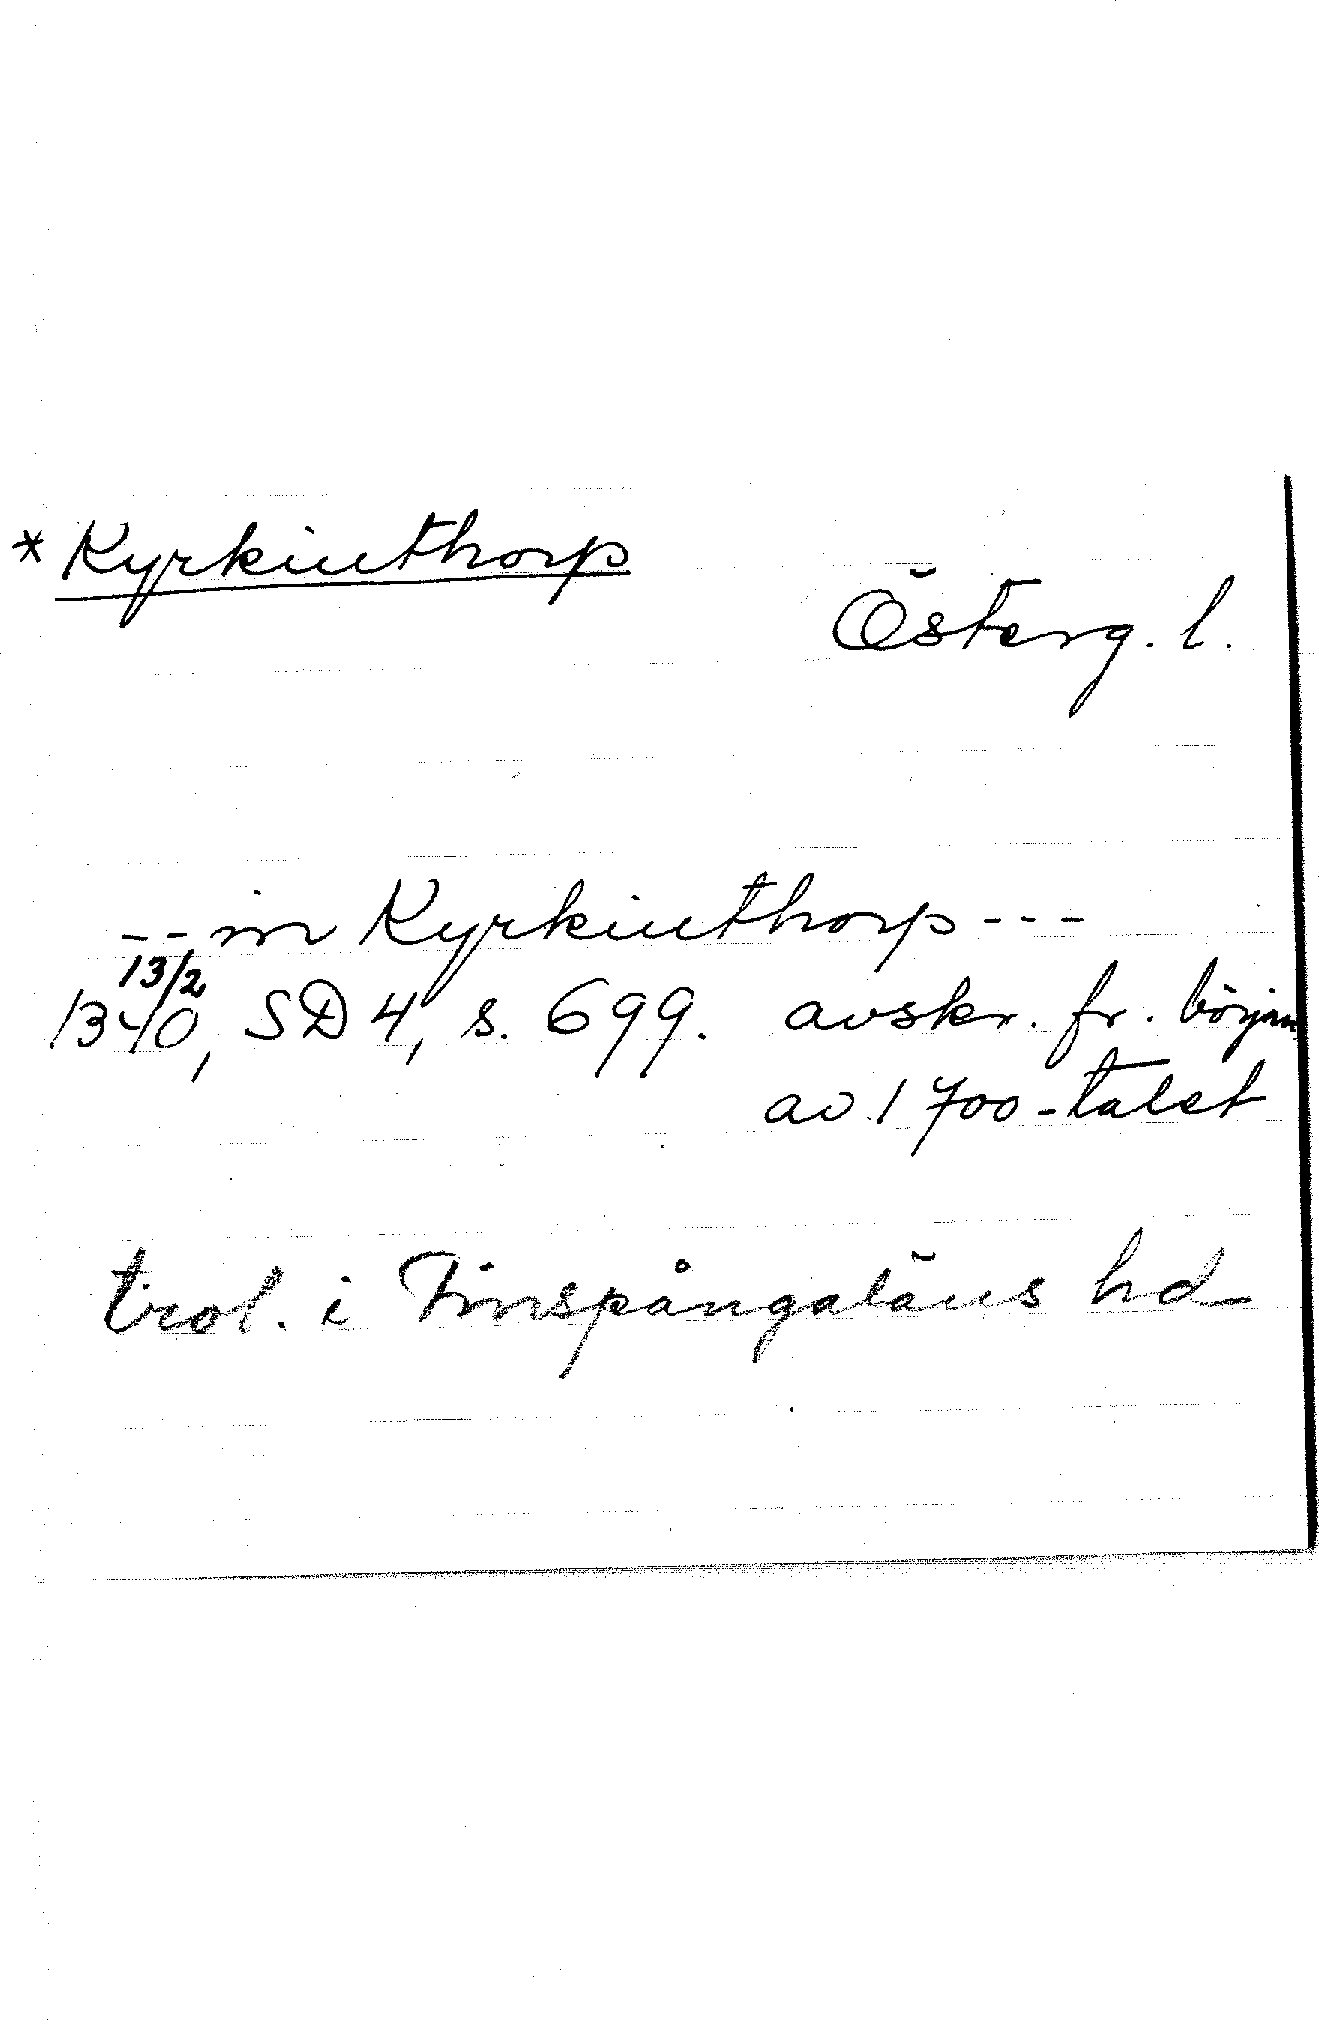 * Kyrkiuthorp
Österg. l.
-- in Kyrkiuthorp ---
13/2
1340, SD 4, s. 699. avskr. fr. början
av 1700-talet
trol. i Finspångaläns hd